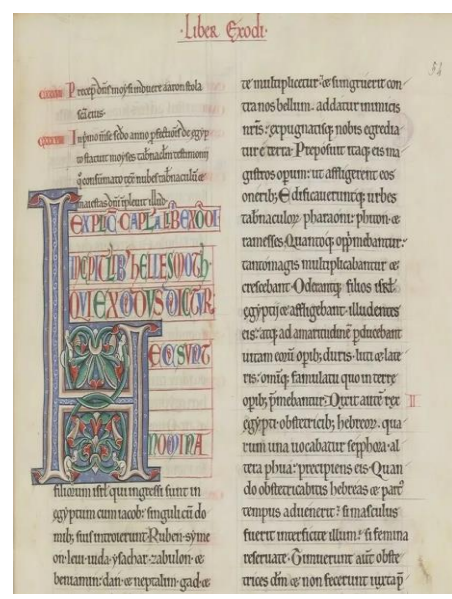 Liber Exodi
54
Precep dn̄s moysi induere aaron stola
sc̄a eius.
In primo mense secdo anno profectiōis de egyp
to statuit moyses tabnaclm testimonii
consumato tēn nubes tabnaculū &
maiestas dn̄i īpleuit illud
EXPLIC̄ CAPL̄A LIB EXODI
INCIPIT LIB HELLESMOTH
QVI EXODVS DICITVR
HEC SVNT
NOMINA
filiorum isrl̄ qui ingressi sunt in
egyptum cum iacob: singuli cū do
mib; suis introierunt. Ruben. syme
on. leui. iuda. ysachar. zabulon. &
beniamin. dan. & neptalim. gad. &
te multiplicetur. & si ingruerit con
tra nos bellum. addatur inimicis
nr̄is: expugnatisq; nobis egredia
tur e terra. Preposuit itaq; eis ma
gistros operum: ut affligerent eos
onerib; Edificaueruntq; urbes
tabnaculorum pharaoni: phiton. &
ramesses. Quantoq; opp̄mebantur:
tantomagis multiplicabantur &
crescebant. Oderantq; filios isrl̄
egyptii & affligebant illudentes
eis: atq; ad amaritudinē ꝑducebant
uitam eorū opib; duris. luti & late
ris: omniq; famulatu quo in terre
opib; p̄mebantur. Dixit autē rex
II
egypti obstetricib; hebreorum. qua
rum una uocabatur sephora. al
tera phua: precipiens eis. Quan
do obstetricabitis hebreas & part
tempus aduenerit: si masculus
fuerit interficite illum: si femina
reseruate. Timuerunt aut̄ obste
trices dm̄ & non fecerunt iuxta p̄